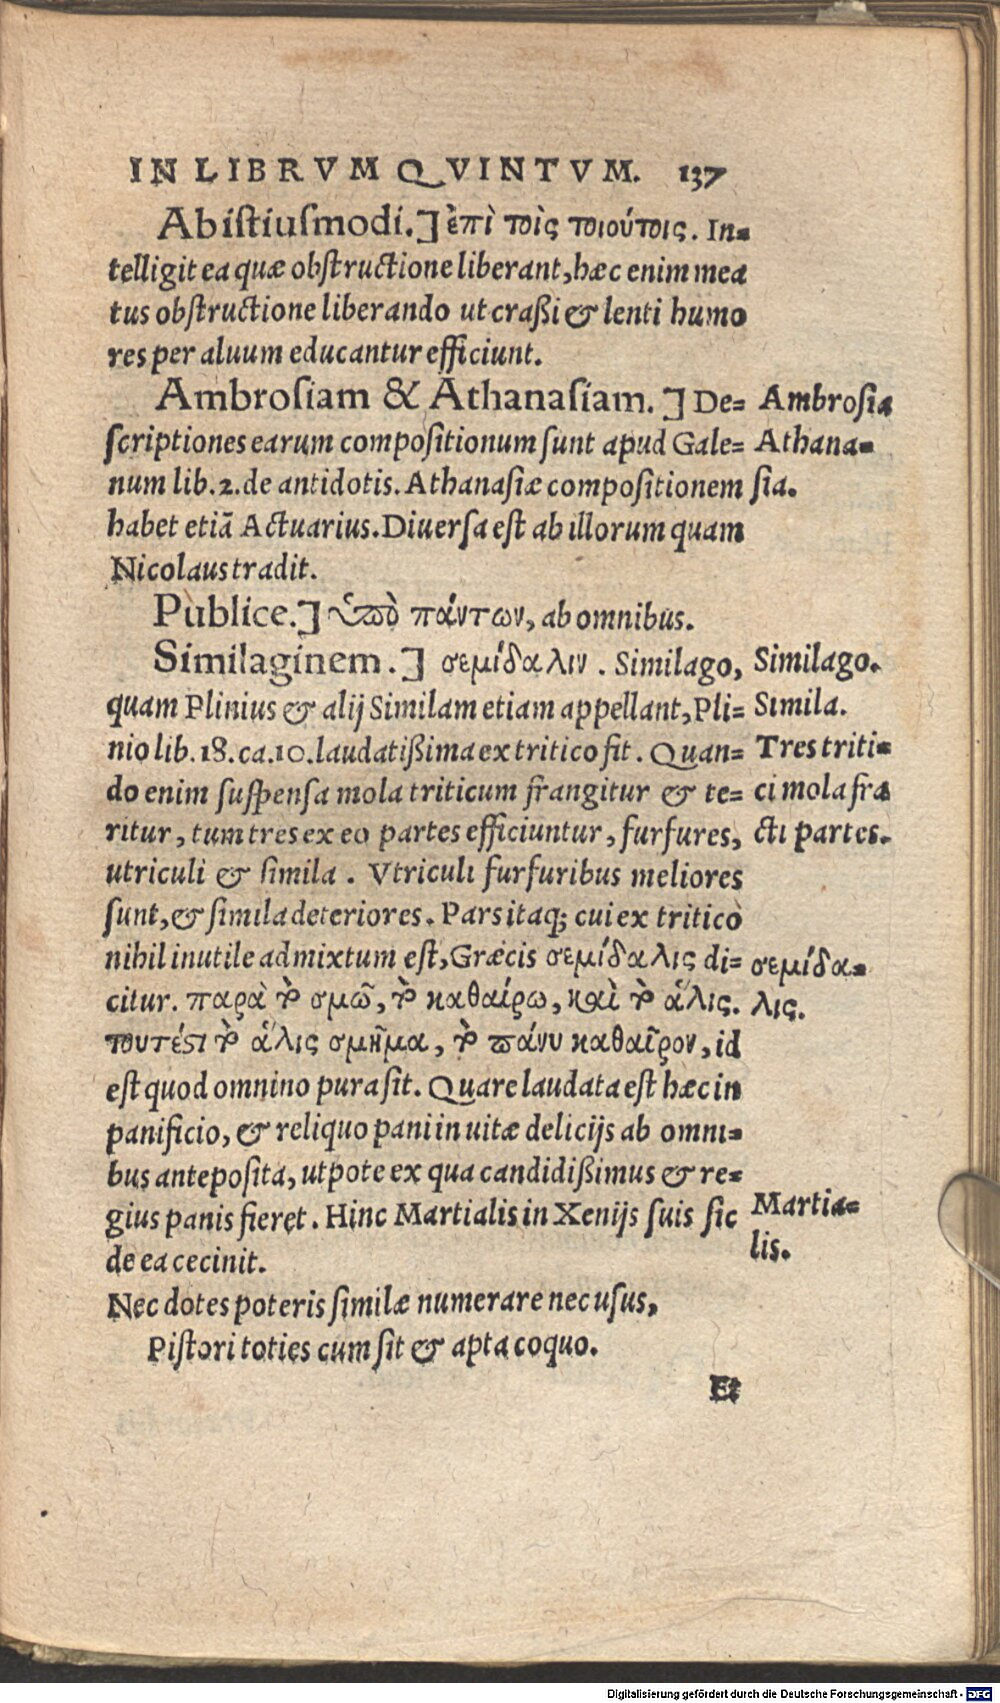 IN LIBRVM QVINTVM. 137
Ab istiusmodi.] ἐπὶ τοῖς τοιούτοις. In=
telligit ea quæ obstructione liberant, hæc enim mea
tus obstructione liberando ut craßi & lenti humo
res per aluum educantur efficiunt.
Ambrosiam & Athanasiam.] De=
scriptiones earum compositionum sunt apud Gale=
num lib. 2. de antidotis. Athanasiæ compositionem
habet etiã Actuarius. Diuersa est ab illorum quam
Nicolaus tradit.
Ambrosia
Athana=
sia.
Publice.] ὑπὸ πάντων, ab omnibus.
Similaginem.] σεμίδαλιν. Similago,
quam Plinius & alij Similam etiam appellant, Pli=
nio lib. 18. ca. 10. laudatißima ex tritico fit. Quan=
do enim suspensa mola triticum frangitur & te=
ritur, tum tres ex eo partes efficiuntur, furfures,
utriculi & simila. Vtriculi furfuribus meliores
sunt, & simila deteriores. Pars itaq; cui ex tritico
nihil inutile admixtum est, Græcis σεμίδαλις di=
citur. παρὰ τὸ σμῶ, τὸ καθαίρω, καὶ τὸ ἅλις.
τουτέστι τὸ ἅλις σμῆμα, τὸ πάνυ καθαῖρον, id
est quod omnino pura sit. Quare laudata est hæc in
panificio, & reliquo pani in uitæ delicijs ab omni=
bus anteposita, utpote ex qua candidißimus & re=
gius panis fieret. Hinc Martialis in Xenijs suis sic
de ea cecinit.
Similago.
Simila.
Tres triti=
ci mola fra
cti partes.
σεμίδα=
λις.
Martia=
lis.
Nec dotes poteris similæ numerare nec usus,
Pistori toties cum sit & apta coquo.
Et
Digitalisierung gefördert durch die Deutsche Forschungsgemeinschaft - DFG